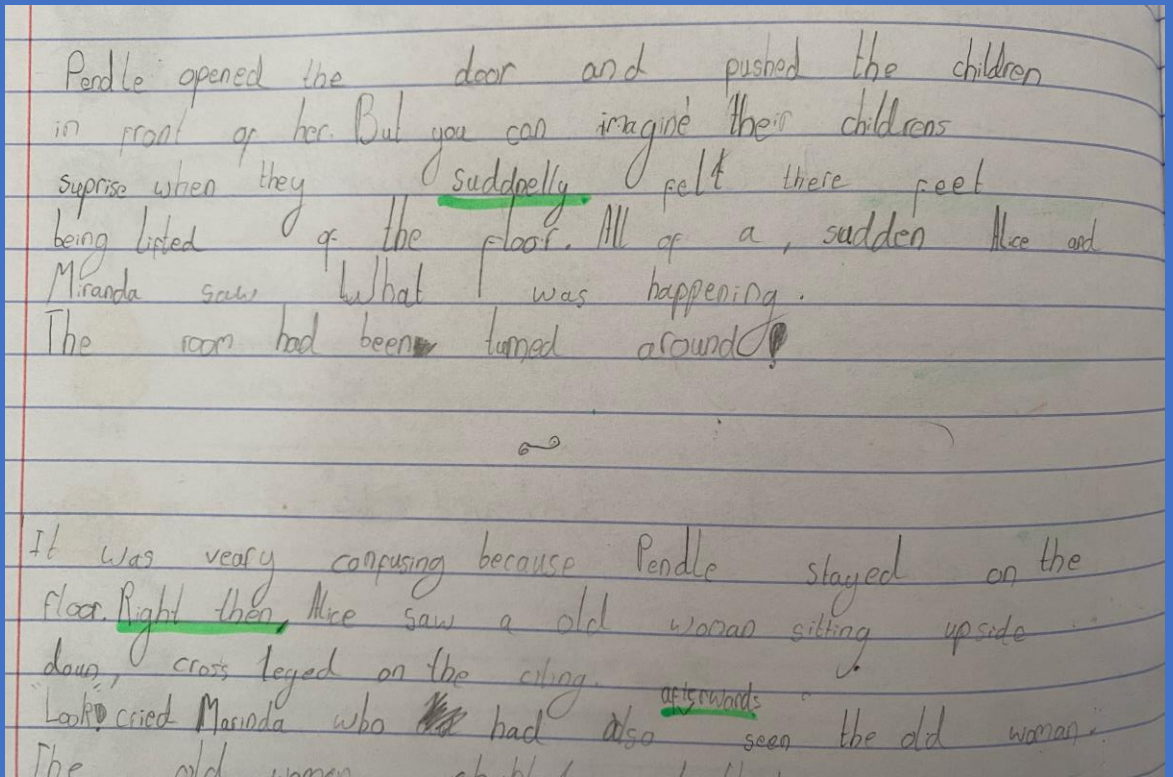 Pendle opened the door and pushed the children
in front of her. But you can imagine their childrens
suprise when they suddnelly felt there feet
being lifted of the floor. All of a, sudden Alice and
Miranda saw What was happening.
The room had been turned around!
It was veary confusing because Pendle stayed on the
floor. Right then, Alice saw a old woman sitting upside
down, cross leged on the ciling.
afterwords
"Look" cried Marinda who had also seen the old woman.
The old women